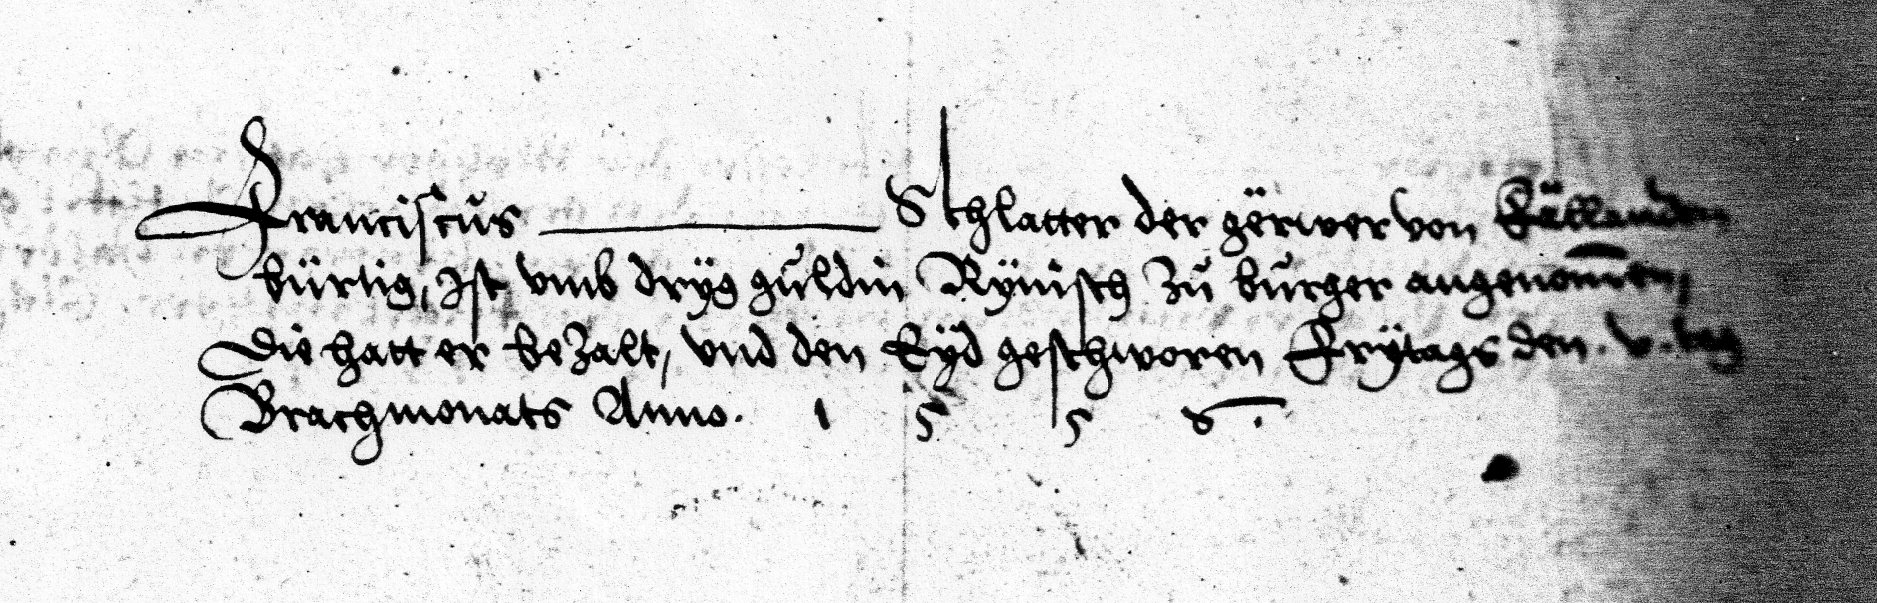 Franciscus ——— Schlatter der gërwer von Fällanden
bürtig, Ist vmb drÿg gůldin Rÿnisch Zů bůrger angenom̅en,
Die hatt er beZalt, vnd den Eÿd geschworen Frÿtags den . v. tag
Brachmonats Anno. 1 5 5 6.